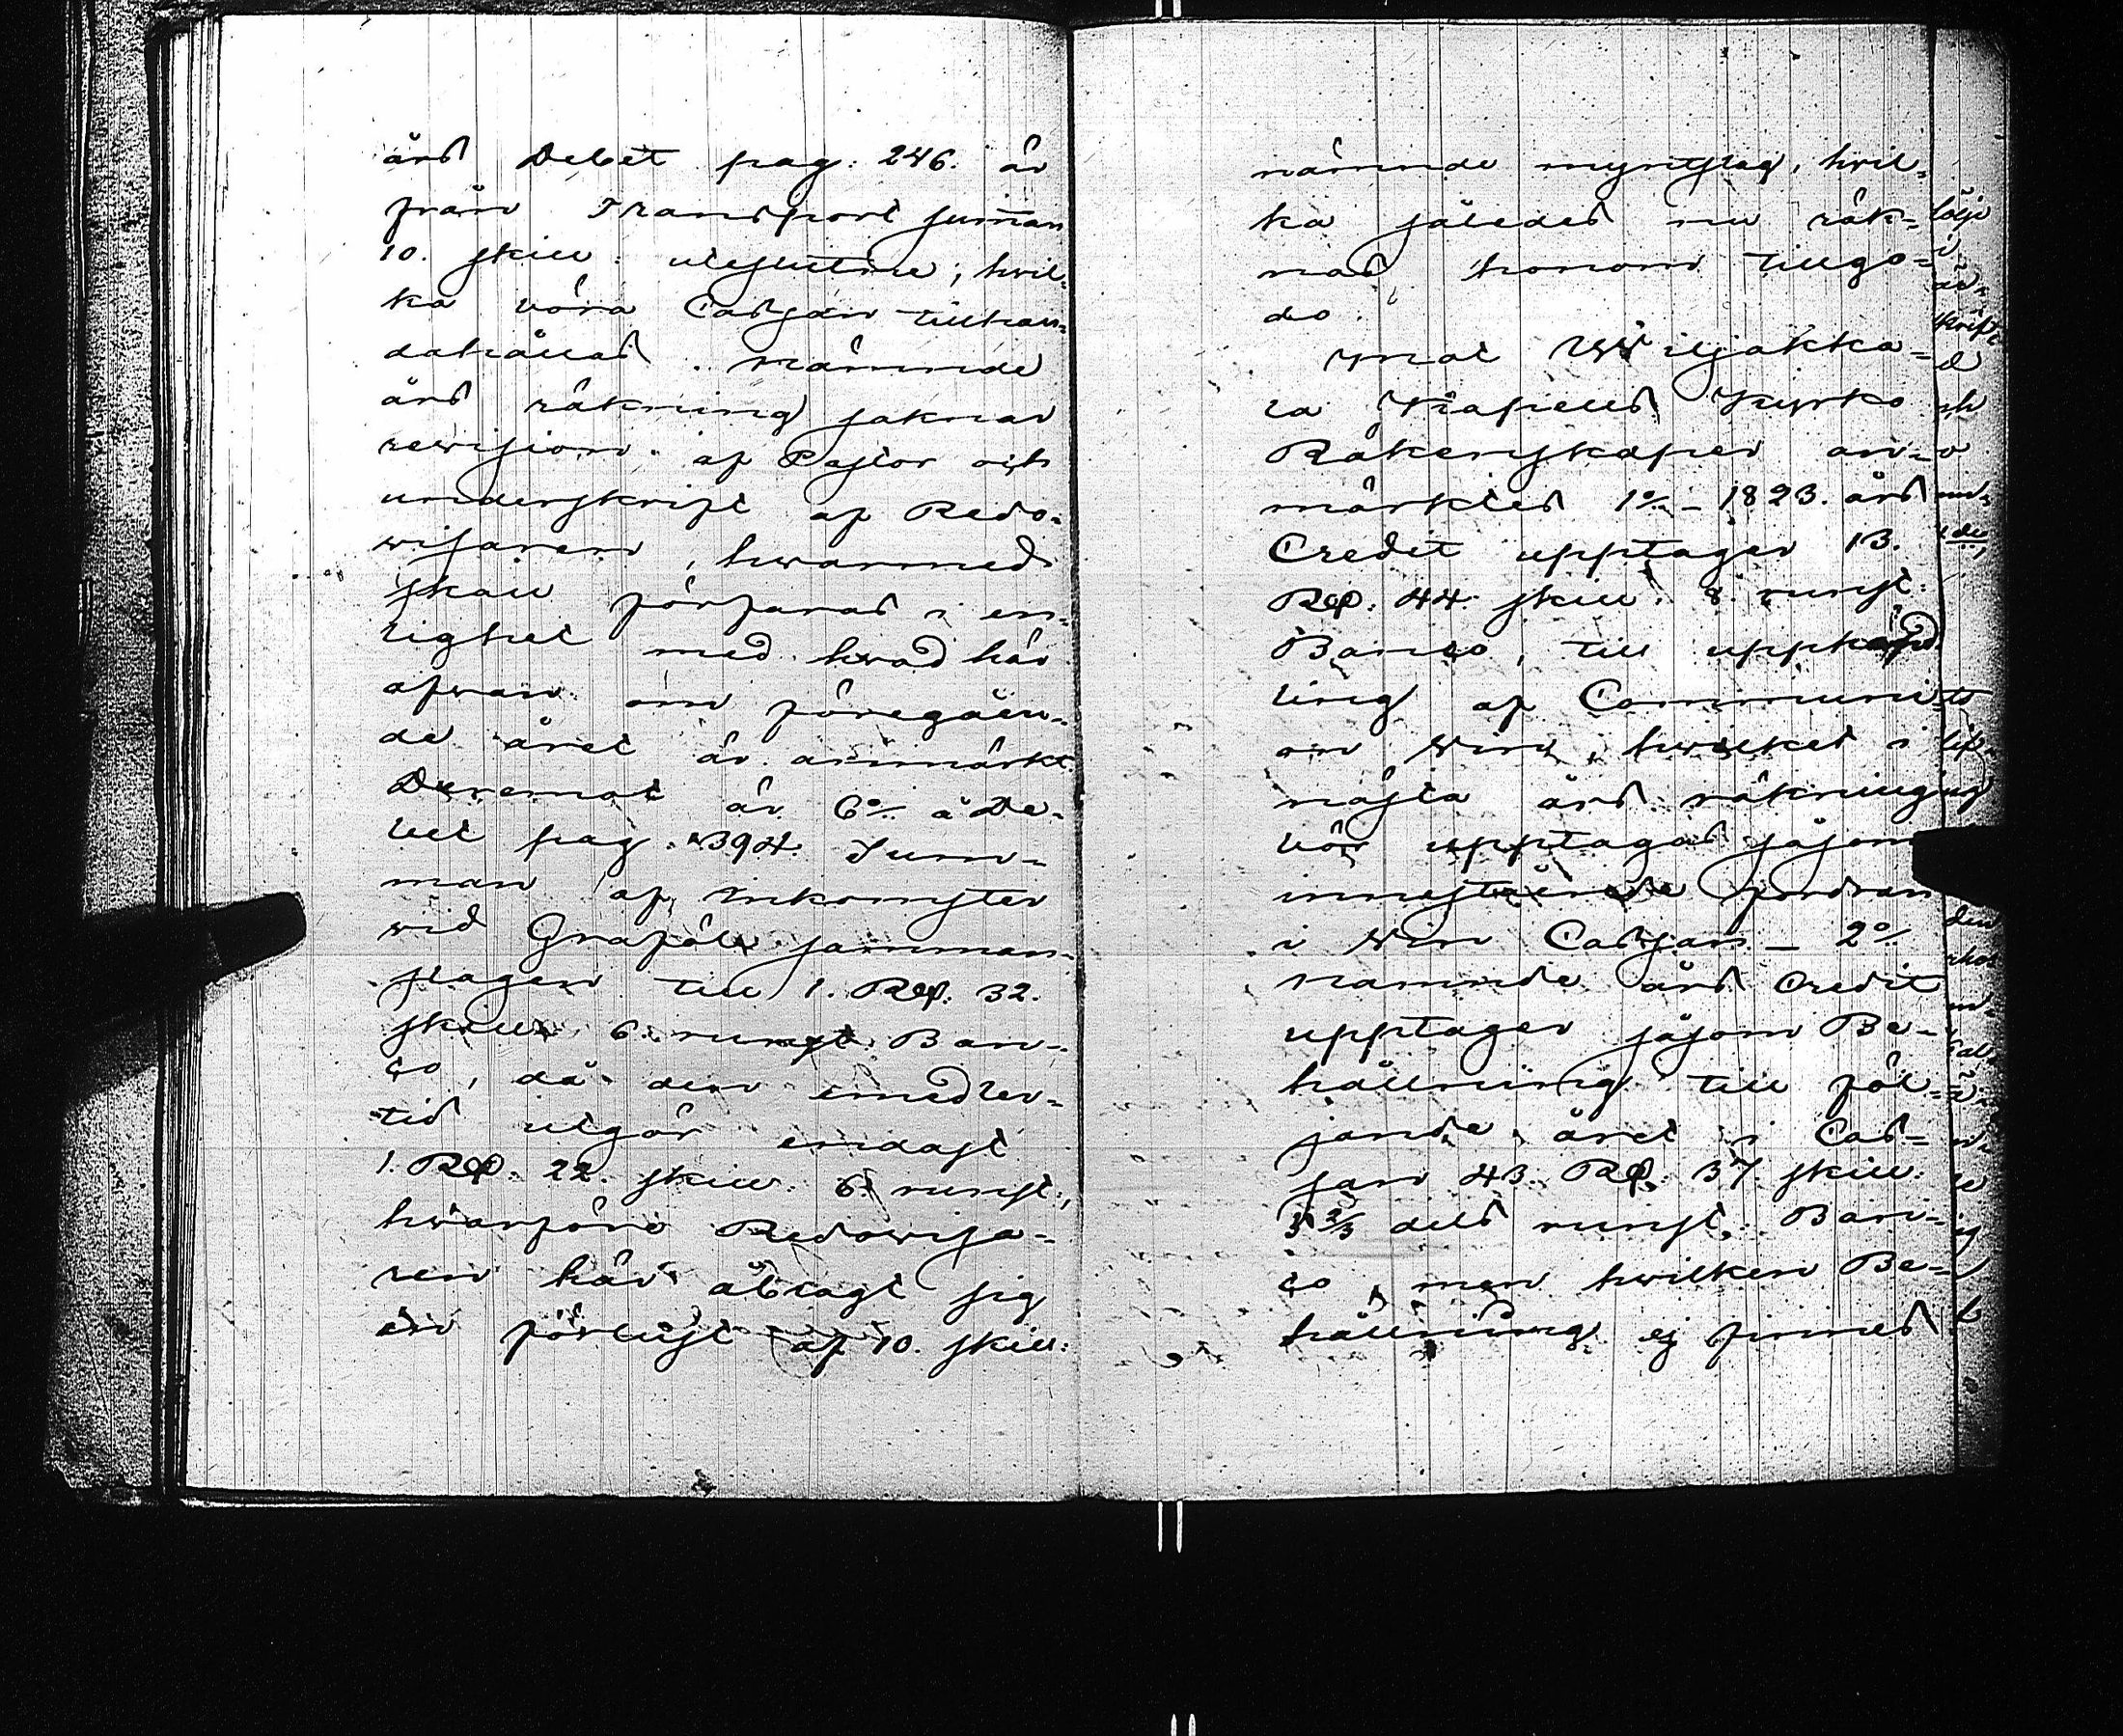 års Debet pag: 246. är
från Transport summan
10. skill: uteslutne; hvil-
ka böra Cassan tillhan-
dahållas. Nämnde
års räkning saknar
revision af Pastor och
underskrift af Redo-
visaren, hvarmed
skall förfaras i en-
lighet med hvad här
ofvan om föregåen-
de året är anmärkt.
Deremot är 6:o å De-
bet pag: 394. Sum-
man af Inkomster
vid Graföl samman-
slagen till 1. Rd. 32.
skill: 6. runst: Ban-
co, då den emedler-
tid utgör endast
1. Rd. 22. skill: 6. runst:,
hvarföre Redovisa-
ren här åtragt sig
en förlust af 10. skill:
nämnde myntslag, hvil-
ka således nu räk-
nas honom tillgo-
do.
Wiljakka-
la Kapells Kyrko
Räkenskaper an-
märktes 1:o 1823. års
Credit upptager 13.
Rd. 44. skill. 8. runst:
Banco, till upphand-
ling af Communi-
on Vin, hvilket i
nästa års räkning
bör upptagas såsom
innestående fordran
i Vin Cassan – 2:o
nämnde års Credit
upptager såsom Be-
hållning till föl-
jande året i Cas-
san 43. Rd. 37. skill:
5 2/3 dels runst. Ban-
co, men hvilken Be-
hållning ej finnes